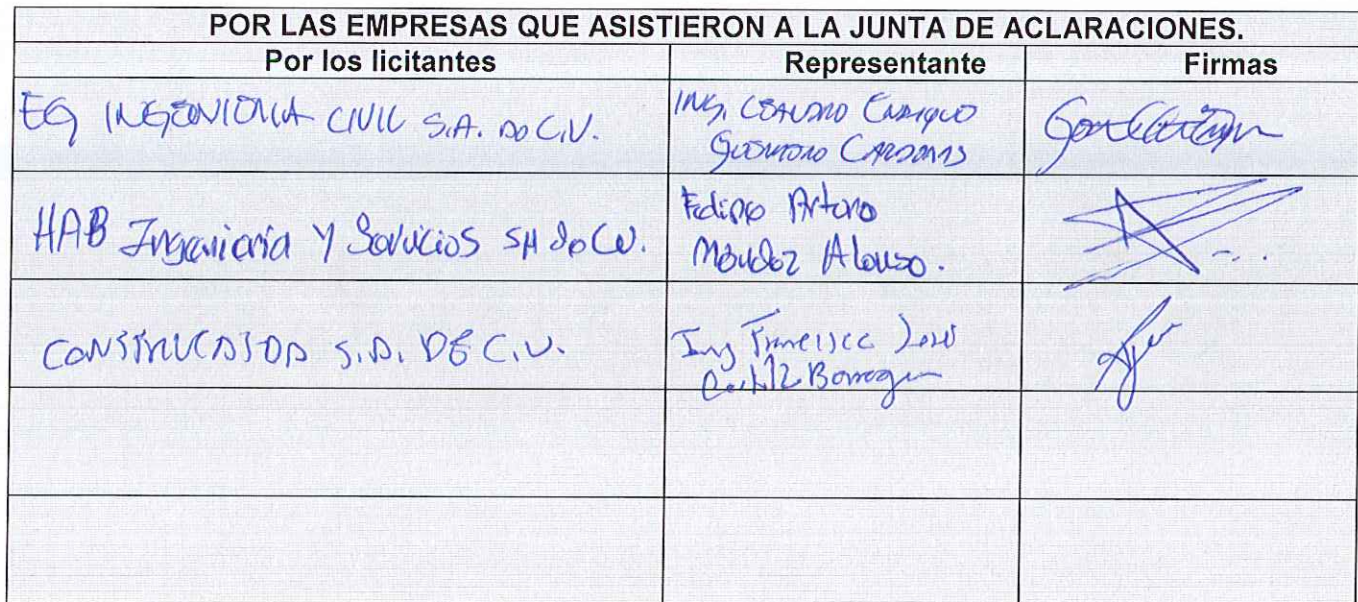 POR LAS EMPRESAS QUE ASISTIERON A LA JUNTA DE ACLARACIONES.
Por los licitantes Representante Firmas
EG INGENIERIA CIVIL S.A. DE C.V.
ING. LEANDRO ENRIQUE
CARDENAS
HAB Ingeniería Y Servicios SA de CV.
Felipe Arturo
Méndez Alonso.
S.A. DE C.V.
Ing Francisco José